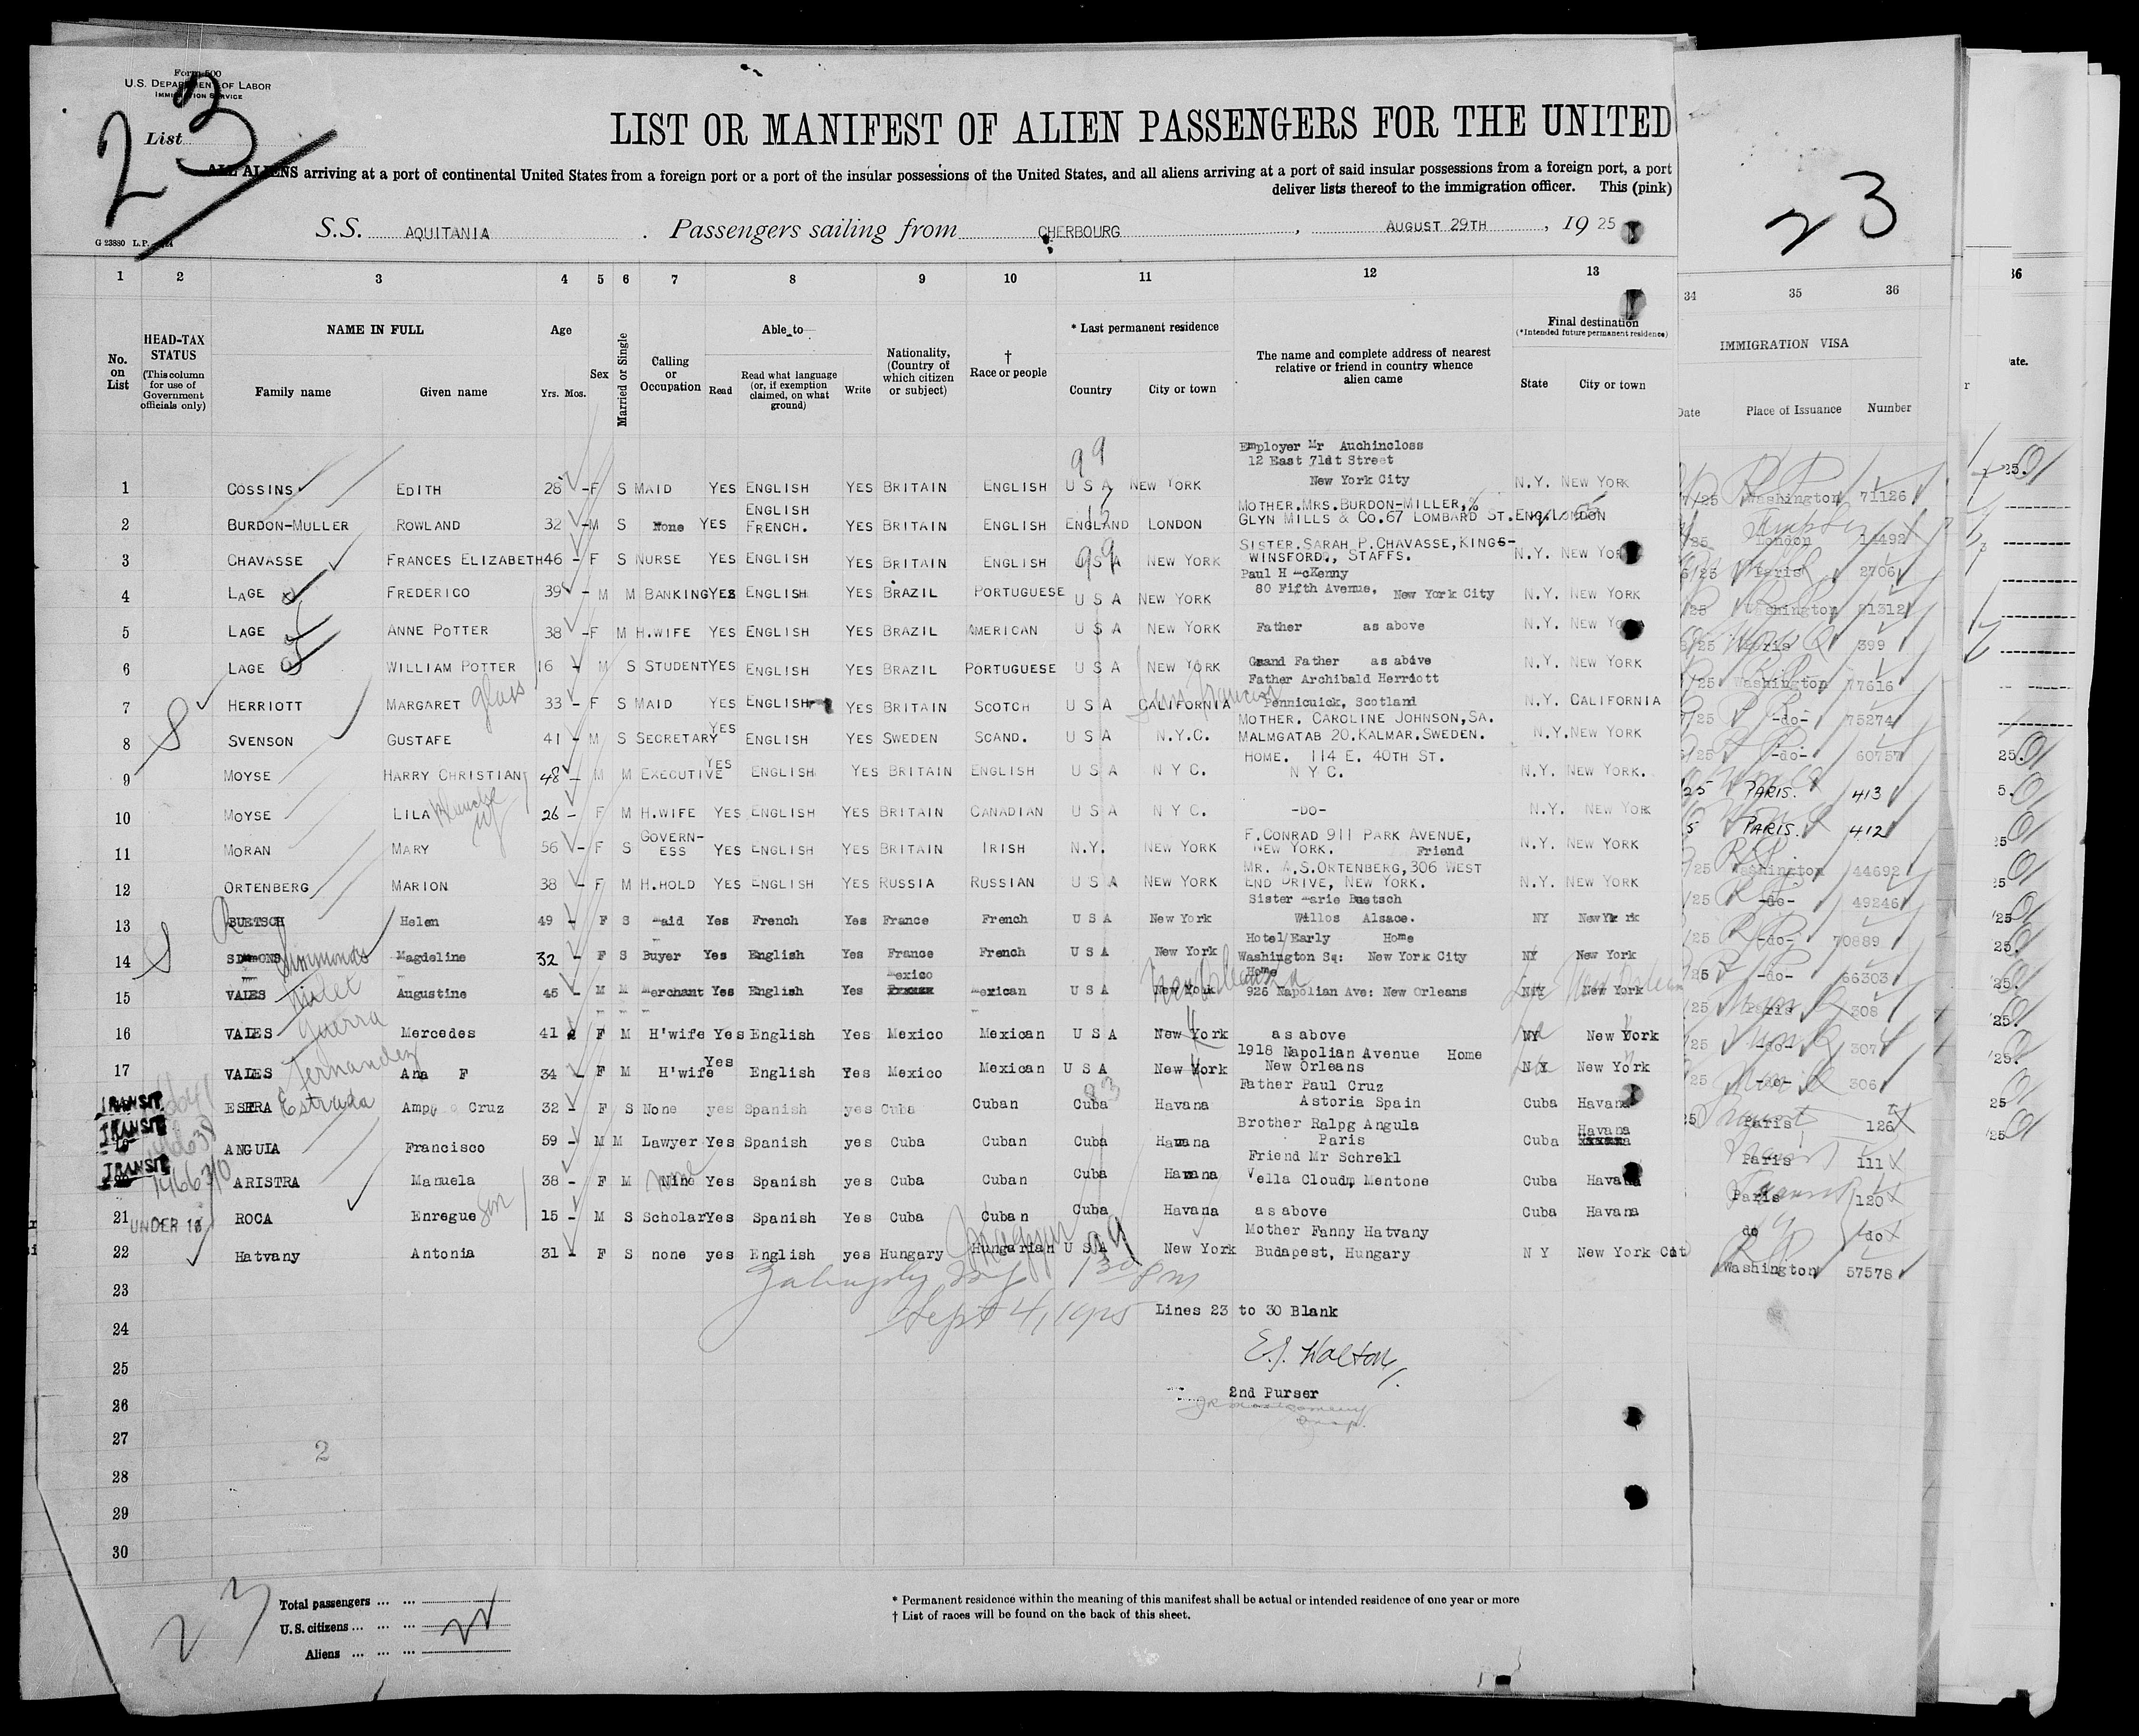 Form 500
U.S. DEPARTMENT OF LABOR
IMMIGRATION SERVICE
23
List
LIST OR MANIFEST OF ALIEN PASSENGERS FOR THE UNITED
ALL ALIENS arriving at a port of continental United States from a foreign port or a port of the insular possessions of the United States, and all aliens arriving at a port of said insular possessions from a foreign port, a port
deliver lists thereof to the immigration officer. This (pink)
23
G 23880 L.P.
S.S. AQUITANIA . Passengers sailing from CHERBOURG , AUGUST 29TH , 19 25
1 2 3 4 5 6 7 8 9 10 11 12 13 34 35 36 36
No. on List
HEAD-TAX STATUS (This column for use of Government officials only)
NAME IN FULL
Family name Given name
Age
Yrs. Mos.
Sex
Married or Single
Calling or Occupation
Able to
Read Read what language (or, if exemption claimed, on what ground) Write
Nationality, (Country of which citizen or subject)
† Race or people
* Last permanent residence
Country City or town
The name and complete address of nearest relative or friend in country whence alien came
Final destination
(*Intended future permanent residence)
State City or town
IMMIGRATION VISA
Date Place of Issuance Number
ate.
Employer Mr Auchincloss
12 East 71dt Street
99
1 COSSINS EDITH 28 - F S MAID YES ENGLISH YES BRITAIN ENGLISH U S A NEW YORK New York City N.Y. NEW YORK /25 Washington 71126
2 BURDON-MULLER ROWLAND 32 - M S None YES ENGLISH FRENCH. YES BRITAIN ENGLISH ENGLAND LONDON MOTHER.MRS.BURDON-MILLER,% GLYN MILLS & CO.67 LOMBARD ST. ENG. LONDON /25 London 14492
3 CHAVASSE FRANCES ELIZABETH 46 - F S NURSE YES ENGLISH YES BRITAIN ENGLISH USA NEW YORK SISTER.SARAH P.CHAVASSE,KINGS-WINSFORD., STAFFS. N.Y. NEW YORK /25 Paris 2706
4 LAGE FREDERICO 39 - M M BANKING YES ENGLISH YES BRAZIL PORTUGUESE U S A NEW YORK Paul H McKenny 80 Fifth Avenue, New York City N.Y. NEW YORK /25 Washington 91312
5 LAGE ANNE POTTER 38 - F M H.WIFE YES ENGLISH YES BRAZIL AMERICAN U S A NEW YORK Father as above N.Y. NEW YORK /25 Paris 399
6 LAGE WILLIAM POTTER 16 - M S STUDENT YES ENGLISH YES BRAZIL PORTUGUESE U S A NEW YORK Grand Father as abive N.Y. NEW YORK /25 Washington 77616
7 HERRIOTT MARGARET 33 - F S MAID YES ENGLISH YES BRITAIN SCOTCH U S A CALIFORNIA San Francisco Father Archibald Herriott Pennicuick, Scotland N.Y. CALIFORNIA /25 -do- 75274
8 SVENSON GUSTAFE 41 - M S SECRETARY YES ENGLISH YES SWEDEN SCAND. U S A N.Y.C. MOTHER. CAROLINE JOHNSON,SA. MALMGATAB 20.KALMAR.SWEDEN. N.Y. NEW YORK /25 -do- 60757
9 MOYSE HARRY CHRISTIAN 48 - M M EXECUTIVE YES ENGLISH YES BRITAIN ENGLISH U S A N Y C. HOME. 114 E. 40TH ST. N Y C. N.Y. NEW YORK. 25 PARIS. 413
10 MOYSE LILA Blanche 26 - F M H.WIFE YES ENGLISH YES BRITAIN CANADIAN U S A N Y C. -DO- N.Y. NEW YORK 5 PARIS. 412
11 MORAN MARY 56 - F S GOVERN-ESS YES ENGLISH YES BRITAIN IRISH N.Y. NEW YORK F.CONRAD 911 PARK AVENUE, NEW YORK. Friend N.Y. NEW YORK /25 Washington 44692
12 ORTENBERG MARION 38 - F M H.HOLD YES ENGLISH YES RUSSIA RUSSIAN U S A NEW YORK MR. A.S.ORTENBERG,306 WEST END DRIVE, NEW YORK. N.Y. NEW YORK /25 -do- 49246
13 BUETSCH Helen 49 - F S Maid Yes French Yes France French U S A New York Sister Marie Buetsch Willos Alsace. NY New Yk rk /25 -do- 70889
14 SIMMONS Simmonds Magdeline 32 - F S Buyer Yes English Yes France French U S A New York Hotel Early Home Washington Sq: New York City NY New York /25 -do- 66303
15 VALES Augustine 45 - M M Merchant Yes English Yes Mexico Mexican U S A New York New Orleans La Home 926 Napolian Ave: New Orleans NY New York La New Orleans /25 Paris 308
16 VALES Guerra Mercedes 41 F M H'wife Yes English Yes Mexico Mexican U S A New York as above NY New York /25 -do- 307
17 VALES Fernandez Ana F 34 - F M H'wife Yes English Yes Mexico Mexican U S A New York 1918 Napolian Avenue Home New Orleans N Y New York /25 -do- 306
TRANSIT ESTRA Estrada Cruz 32 - F S None yes Spanish yes Cuba Cuban Cuba Havana Father Paul Cruz Astoria Spain Cuba Havana 25 Paris 126
TRANSIT 19 ANGUIA Francisco 59 - M M Lawyer Yes Spanish yes Cuba Cuban Cuba Havana Brother Ralpg Angula Paris Cuba Havana Paris 111
TRANSIT ARISTRA Manuela 38 - F M Nine None Yes Spanish yes Cuba Cuban Cuba Havana Friend Mr Schrekl Vella Cloudm Mentone Cuba Havana Paris 120
21 UNDER 16 ROCA Enregue son 15 - M S Scholar Yes Spanish Yes Cuba Cuban Cuba Havana as above Cuba Havana do do
22 Hatvany Antonia 31 - F S none yes English yes Hungary Hungarian Magyar U S A 99 New York Mother Fanny Hatvany Budapest, Hungary N Y New York Cit Washington 57578
23
Sept 4, 1925
Lines 23 to 30 Blank
24
E.J. Walton
25
2nd Purser
26
27
2
28
29
30
23
Total passengers ... ...
U.S. citizens ... ... ...
Aliens ... ... ...
22
* Permanent residence within the meaning of this manifest shall be actual or intended residence of one year or more
† List of races will be found on the back of this sheet.